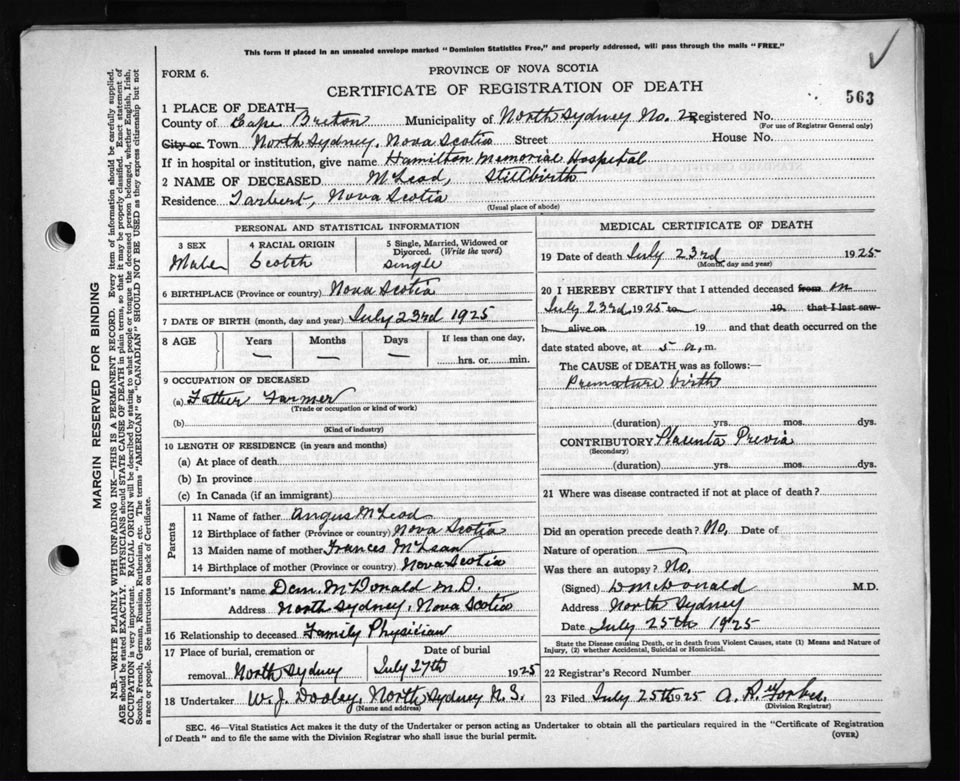 This form if placed in an unsealed envelope marked "Dominion Statistics Free," and properly addressed, will pass through the mails "FREE."
FORM 6.
PROVINCE OF NOVA SCOTIA
CERTIFICATE OF REGISTRATION OF DEATH
563
1 PLACE OF DEATH—
County of Cape Breton Municipality of North Sydney No. 2 Registered No.
(For use of Registrar General only)
City or Town North Sydney, Nova Scotia Street House No.
If in hospital or institution, give name Hamilton Memorial Hospital
2 NAME OF DECEASED McLeod, Stillbirth
Residence Tarbert, Nova Scotia
(Usual place of abode)
PERSONAL AND STATISTICAL INFORMATION
3 SEX 4 RACIAL ORIGIN 5 Single, Married, Widowed or Divorced. (Write the word)
Male Scotch single
6 BIRTHPLACE (Province or country) Nova Scotia
7 DATE OF BIRTH (month, day and year) July 23rd 1925
8 AGE Years Months Days If less than one day,
— — — hrs. or min.
9 OCCUPATION OF DECEASED
(a) Father Farmer
(Trade or occupation or kind of work)
(b)
(Kind of industry)
10 LENGTH OF RESIDENCE (in years and months)
(a) At place of death
(b) In province
(c) In Canada (if an immigrant)
Parents
11 Name of father Angus McLeod
12 Birthplace of father (Province or country) Nova Scotia
13 Maiden name of mother Frances McLean
14 Birthplace of mother (Province or country) Nova Scotia
15 Informant's name Dan. McDonald M.D.
Address North Sydney, Nova Scotia
16 Relationship to deceased Family Physician
17 Place of burial, cremation or removal North Sydney Date of burial July 27th 1925
18 Undertaker W. J. Dooley, North Sydney N.S.
(Name and address)
MEDICAL CERTIFICATE OF DEATH
19 Date of death July 23rd 1925
(Month, day and year)
20 I HEREBY CERTIFY that I attended deceased from on
July 23rd, 1925 to 19 that I last saw
h alive on 19 and that death occurred on
date stated above, at 5 a.m.
The CAUSE of DEATH was as follows:—
Premature birth
(duration) yrs. mos. dys.
CONTRIBUTORY Placenta Previa
(Secondary)
(duration) yrs. mos. dys.
21 Where was disease contracted if not at place of death?
Did an operation precede death? No. Date of
Nature of operation —
Was there an autopsy? No.
(Signed) D McDonald M.D.
Address North Sydney
Date July 25th 1925
State the Disease causing Death, or in death from Violent Causes, state (1) Means and Nature of
Injury, (2) whether Accidental, Suicidal or Homicidal.
22 Registrar's Record Number
23 Filed July 25th 1925 A. R. Forbes
(Division Registrar)
SEC. 46—Vital Statistics Act makes it the duty of the Undertaker or person acting as Undertaker to obtain all the particulars required in the "Certificate of Registration
of Death" and to file the same with the Division Registrar who shall issue the burial permit.
(OVER)
MARGIN RESERVED FOR BINDING
N.B.—WRITE PLAINLY WITH UNFADING INK—THIS IS A PERMANENT RECORD. Every item of information should be carefully supplied.
AGE should be stated EXACTLY. PHYSICIANS should STATE CAUSE OF DEATH in plain terms, so that it may be properly classified. Exact statement of
OCCUPATION is very important. RACIAL ORIGIN will be described by stating to what people or tongue the deceased person belonged, whether English, Irish,
Scotch, French, German, Russian, Ruthenian, etc. The terms "AMERICAN" or "CANADIAN" SHOULD NOT BE USED as they express citizenship but not
a race or people. See instructions on back of Certificate.